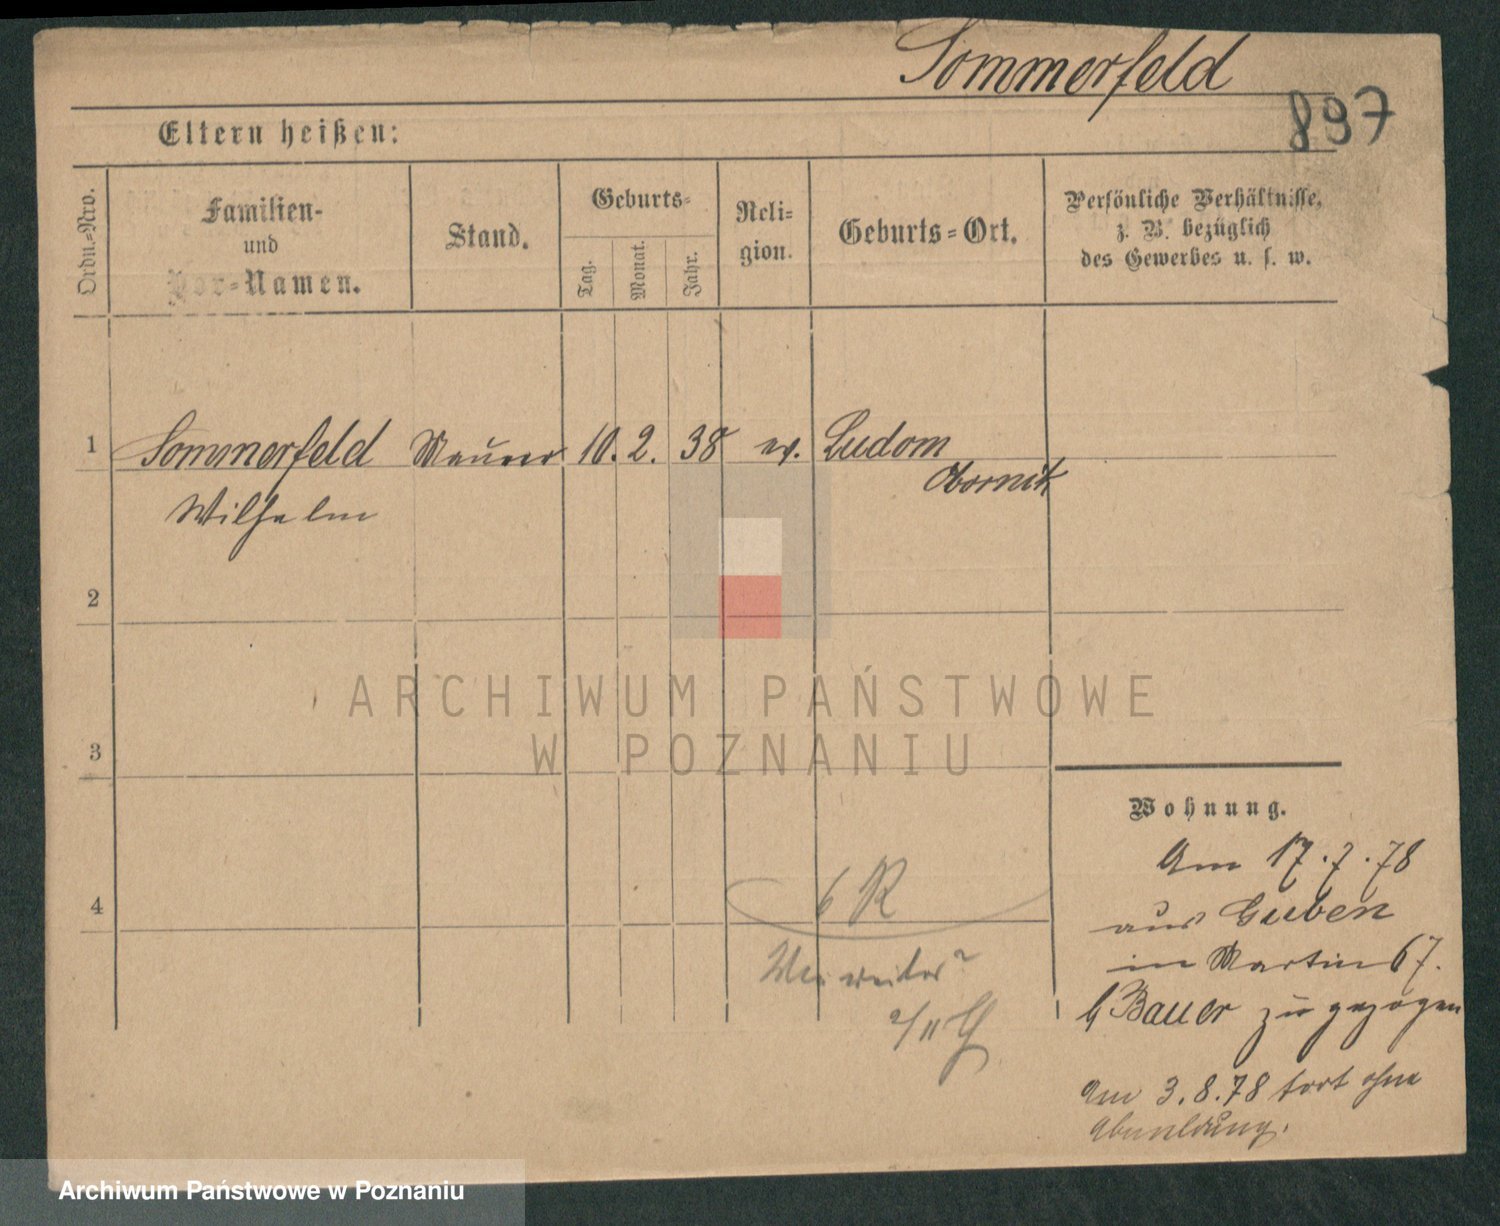 Sommerfeld
897
Eltern heißen:
Ordn.-Nro.
Familien-
und
Vor-Namen.
Stand.
Geburts-
Tag.
Monat.
Jahr.
Reli-
gion.
Geburts-Ort.
Persönliche Verhältnisse,
z. B. bezüglich
des Gewerbes u. s. w.
1 Sommerfeld Maurer 10. 2. 38 ev. Ludom
Obornik
Wilhelm
2
ARCHIWUM PAŃSTWOWE
W POZNANIU
3
Wohnung.
Am 17.7.78
aus Guben
in Martin 67.
b/ Bauer zugezogen
Am 3.8.78 fort ohne
Abmeldung.
4
6 R
weiter?
Archiwum Państwowe w Poznaniu